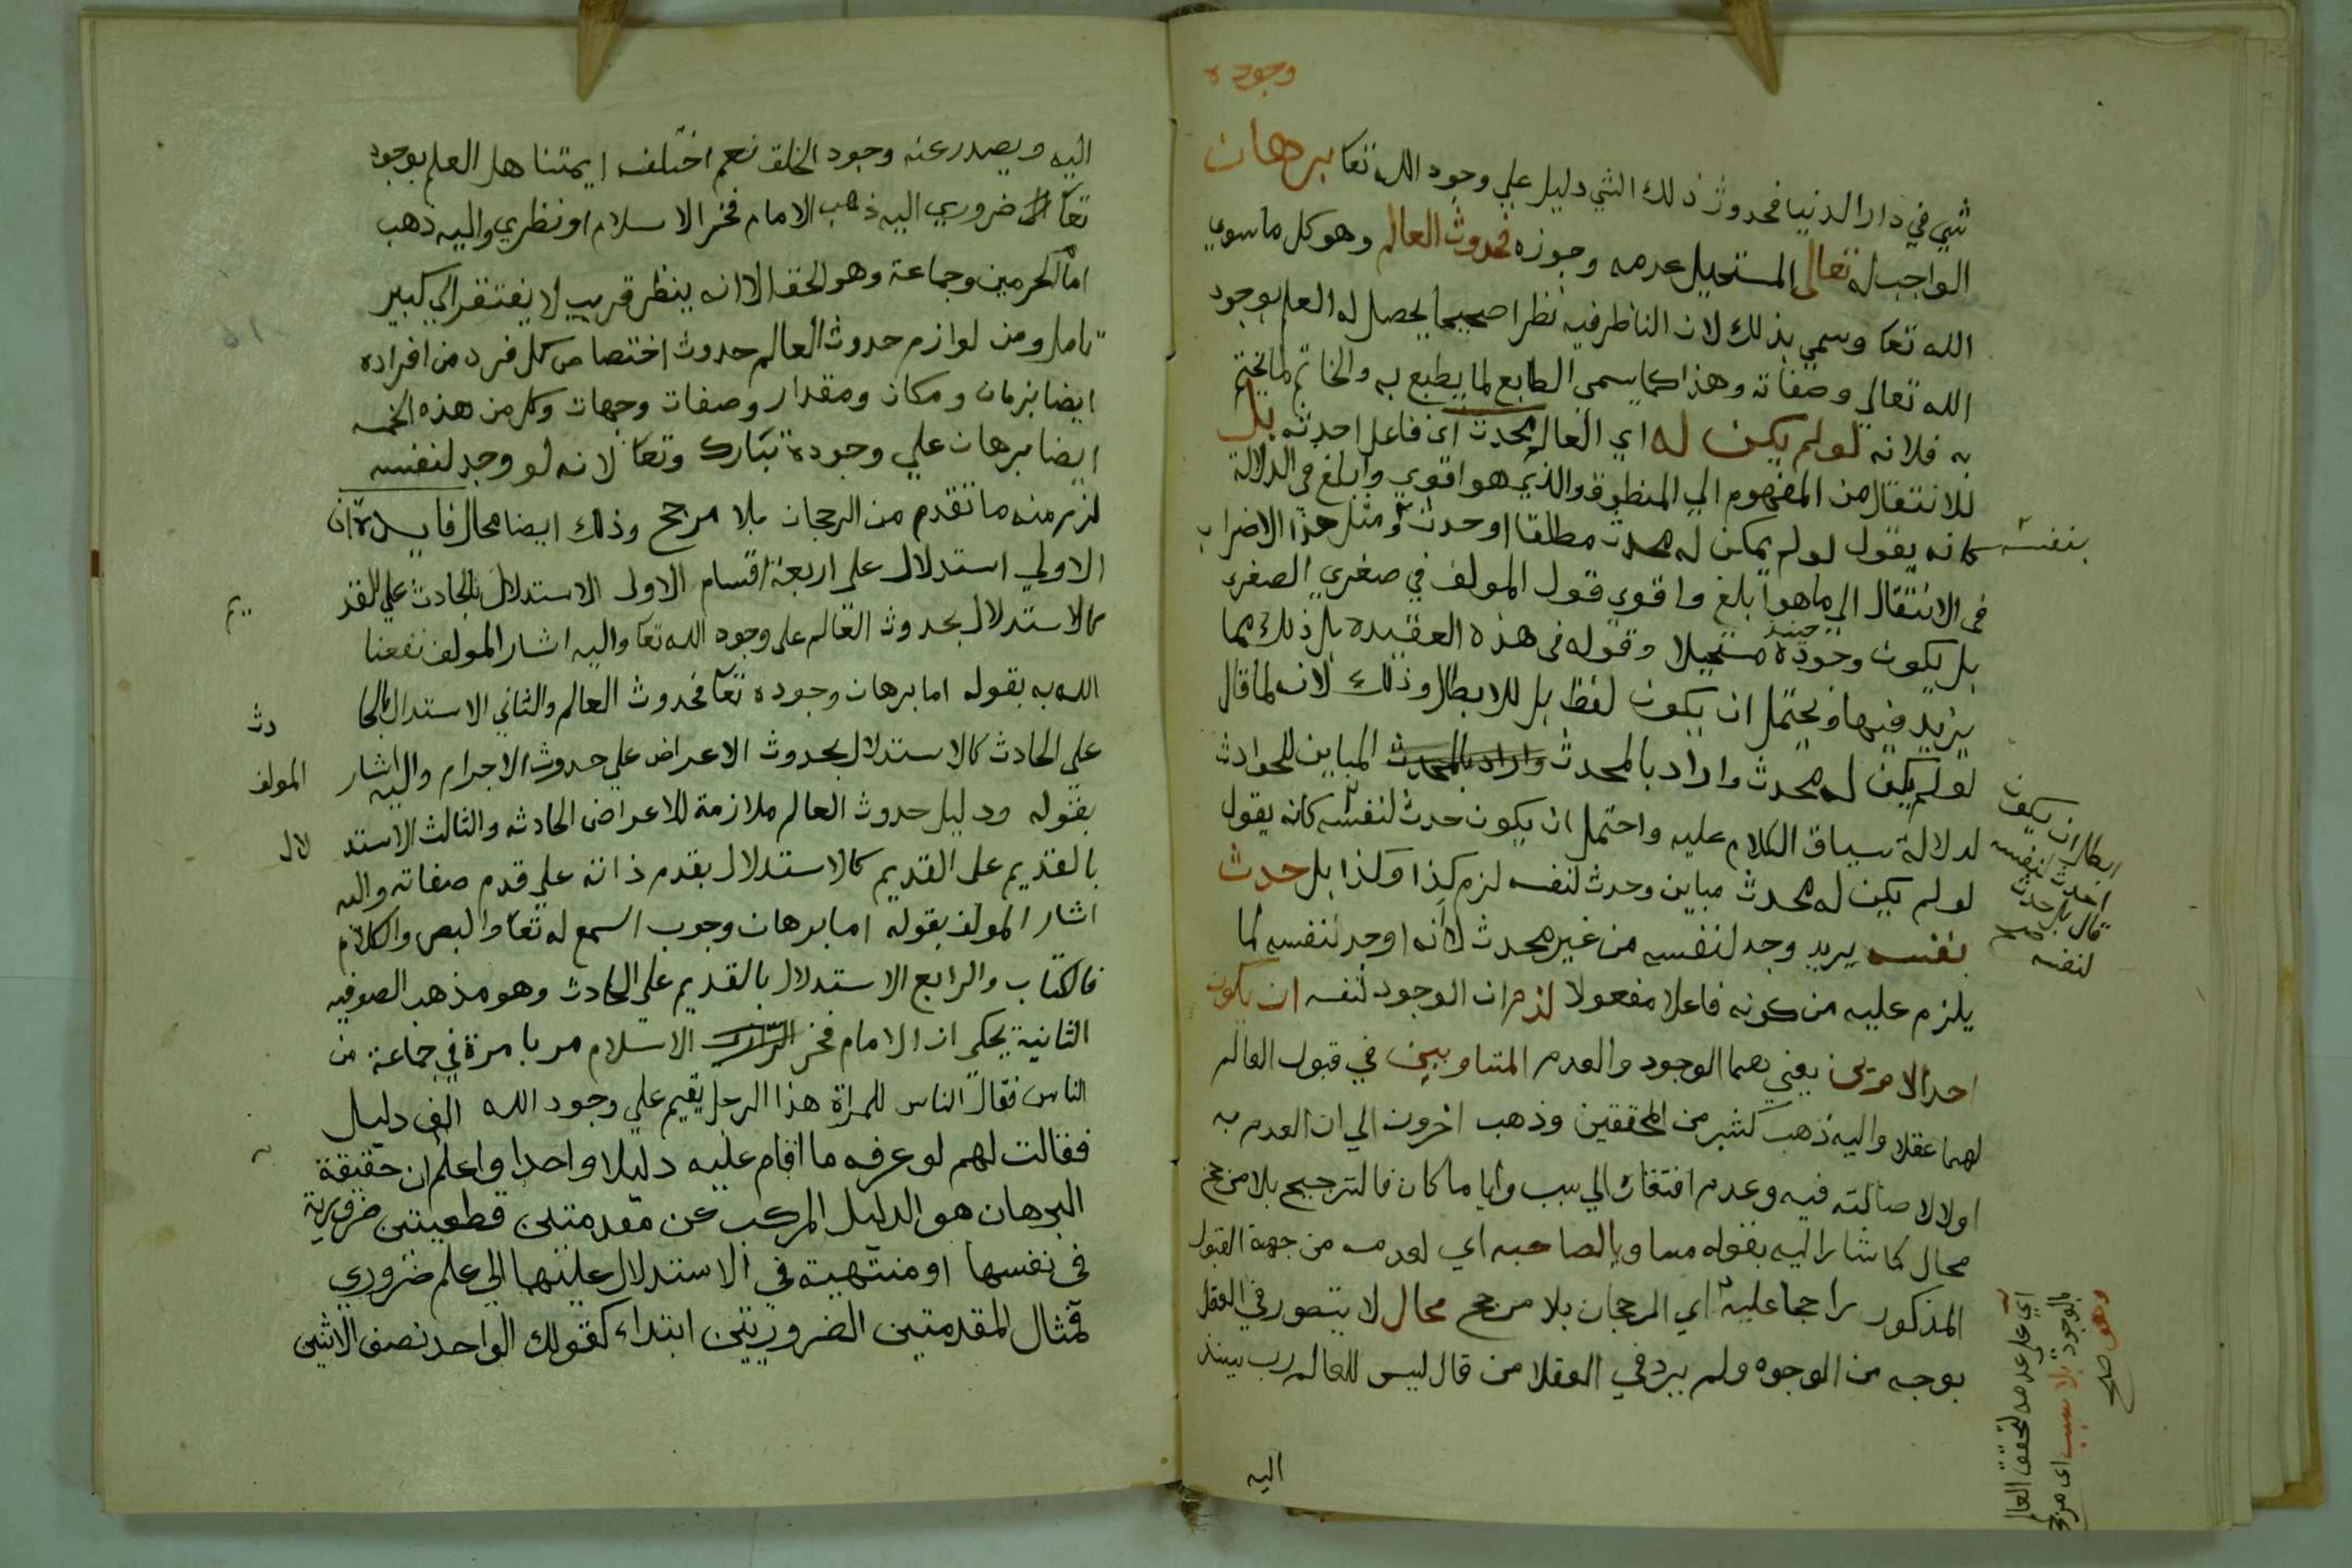 وجوده
شي في دار الدنيا فحدوث ذلك الشي دليل علي وجود الله تعا برهان
الواجب له تعالى المستحيل عدمه وجوزه فحدوث العالم وهو كل ما سوي
الله تعا وسمي بذلك لان الناظر فيه نظرا صحيحا يحصل له العلم بوجود
الله تعالي وصفاته وهذا كما يسمى الطابع لما يطبع به والخاتم لما يختم
به فلانه لو لم يكن له اي العالم محدث اي فاعل احدثه بل
للانتقال من المفهوم الي المنطوق والذي هو اقوي وابلغ في الدلالة
بنفسه
كانه يقول لو لم يكن له محدث مطلقا او حدث ومثل هذا الاضراب
في الانتقال الي ما هو ابلغ واقوي قول المولف في صغري الصغري
بل يكون وجوده حينيد مستحيلا وقوله في هذه العقيده بل ذلك مما
يزيد فيها ويحتمل ان يكون لفظ بل للابطال وذلك لانه لما قال
لو لم يكن له محدث واراد بالمحدث واراد بالمحدث المباين للحوادث
لدلالة سياق الكلام عليه واحتمل ان يكون حدث لنفسه كانه يقول
ابطال ان يكون
احدث لنفسه
قال بل حدث
لنفسه صح
لو لم يكن له محدث مباين وحدث لنفسه لزم كذا وكذا بل حدث
بنفسه يريد وجد لنفسه من غير محدث لانه اوجد لنفسه لما
يلزم عليه من كونه فاعلا مفعولا لزم ان الوجود لنفسه ان يكون
احد الامرين يعني بهما الوجود والعدم المتساويين في قبول العالم
لهما عقلا واليه ذهب كثير من المحققين وذهب اخرون الي ان العدم به
اولا لاصالته فيه وعدم افتقاره الي سبب وايا ما كان فالترجيح بلا مرجح
محال كما شار اليه بقوله مساويا لصاحبه اي لعدمه من جهة القبول
المذكور راجحا عليه اي الرجحان بلا مرجح محال لا يتصور في العقل
بوجه من الوجوه ولم يرد في العقلا من قال ليس للعالم رب يستند
اي على عدمه لتحقق العا
بالوجود بلا سبب اى مرجح
وهو صح
اليه
اليه ويصدر عنه وجود الخلق نعم اختلف ايمتنا هل العلم بوجود
تعالى ضروري اليه ذهب الامام فخر الاسلام او نظري واليه ذهب
امام الحرمين وجماعة وهو الحق الا انه ينظر قريب لا يفتقر الي كبير
تامل ومن لوازم حدوث العالم حدوث اختصاص كل فرد من افراده
ايضا بزمان ومكان ومقدار وصفات وجهات وكل من هذه الخمسه
ايضا برهان علي وجوده تبارك وتعا لانه لو وجد لنفسه
لزم منه ما تقدم من الرجحان بلا مرجح وذلك ايضا محال فايدتان
الاولي استدلال على اربعة اقسام الاولى الاستدلال بالحادث علي القد
يم
كالاستدلال بحدوث العالم على وجود الله تعا واليه اشار المولف نفعنا
الله به بقوله اما برهان وجوده تعا فحدوث العالم والثاني الاستدلال بالحا
دث
علي الحادث كالاستدلال بحدوث الاعراض علي حدوث الاجرام واليه اشار
المولف
بقوله ودليل حدوث العالم ملازمة للاعراض الحادثه والثالث الاستد
لال
بالقديم على القديم كالاستدلال بقدم ذاته علي قدم صفاته واليه
اشار المولف بقوله اما برهان وجوب السمع له تعا والبصر والكلام
فالكتاب والرابع الاستدلال بالقديم علي الحادث وهو مذهب الصوفيه
الثانية يحكى ان الامام فخر الاسلام مر بامرة في جماعة من
الناس فقال الناس للمراة هذا الرجل يقيم علي وجود الله الف دليل
فقالت لهم لو عرفه ما اقام عليه دليلا واحدا واعلم ان حقيقة
البرهان هو الدليل المركب عن مقدمتين قطعيتين ضرورية
في نفسها او منتهية في الاستدلال عليها الي علم ضروري
فمثال المقدمتين الضروريتين ابتداء كقولك الواحد نصف الاثنين